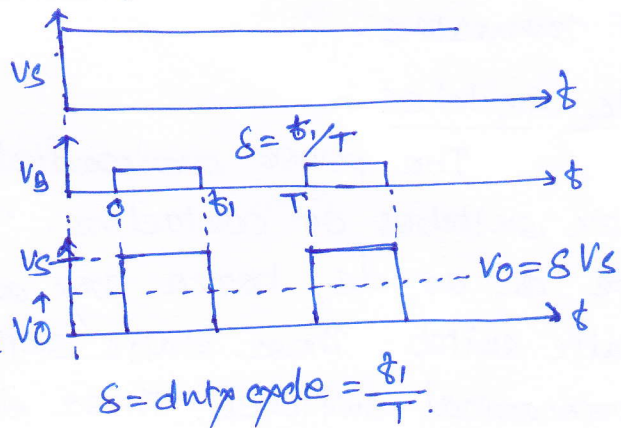 Vs
t
δ = t₁/T
VB
0 t₁ T t
Vs
Vo = δ Vs
Vo
t
δ = duty cycle = t₁/T.